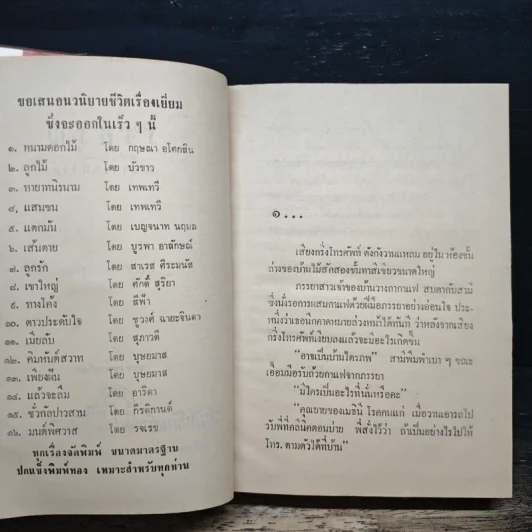 ขอเสนอนวนิยายชีวิตเรื่องเยี่ยม
ซึ่งจะออกในเร็ว ๆ นี้
๑. หนามดอกไม้ โดย กฤษณา อโศกสิน
๒. ลูกไม้ โดย บัวขาว
๓. ทายาทนิรนาม โดย เทพเทวี
๔. แสนซน โดย เทพเทวี
๕. แตกมัน โดย เบญจนาท นฤมล
๖. เส้นตาย โดย บูรพา อาลักษณ์
๗. ลูกรัก โดย สาเรส ศิระมนัส
๘. เขาใหญ่ โดย ศักดิ์ สุริยา
๙. ทางโค้ง โดย สีฟ้า
๑๐. ดาวประดับใจ โดย ชูวงศ์ ฉายะจินดา
๑๑. เมียลับ โดย สุภาวดี
๑๒. พิมหันต์สวาท โดย บุษยมาส
๑๓. เพียงฝัน โดย บุษยมาส
๑๔. แล้วจะลืม โดย อาริตา
๑๕. ชั่วกัลปาวสาน โดย กีรติกานต์
๑๖. มนต์พิศวาส โดย รจเรข
ทุกเรื่องจัดพิมพ์ ขนาดมาตรฐาน
ปกแข็งพิมพ์ทอง เหมาะสำหรับทุกท่าน
๑...
เสียงกริ่งโทรศัพท์ ดังกังวานแหลม อยู่ใน ห้องชั้น
ล่างของบ้านไม้สักสองชั้นทาสีเขียวขนาดใหญ่
ภรรยาสาวเจ้าของบ้านวางกากาแฟ สบตากับสามี
ซึ่งนั่งรอการผสมกาแฟด้วยฝีมือภรรยาอย่างอ่อนใจ ประ-
หนึ่งว่าเธอนึกคาดหมายล่วงหน้าได้ทันที ว่าหลังจากเสียง
กริ่งโทรศัพท์เงียบลงแล้วจะมีอะไรเกิดขึ้น
"อาจเป็นบ้านไตรภพ" สามีพึมพำเบา ๆ ขณะ
เอื้อมมือรับถ้วยกาแฟจากภรรยา
"มีใครเป็นอะไรที่นั่นหรือคะ"
"คุณยายของเมธินี โรคคนแก่ เมื่อวานเอารถไป
รับพี่ที่คลีนิคตอนบ่าย พี่สั่งไว้ว่า ถ้าเป็นอย่างไรไปให้
โทร. ตามตัวได้ที่บ้าน"